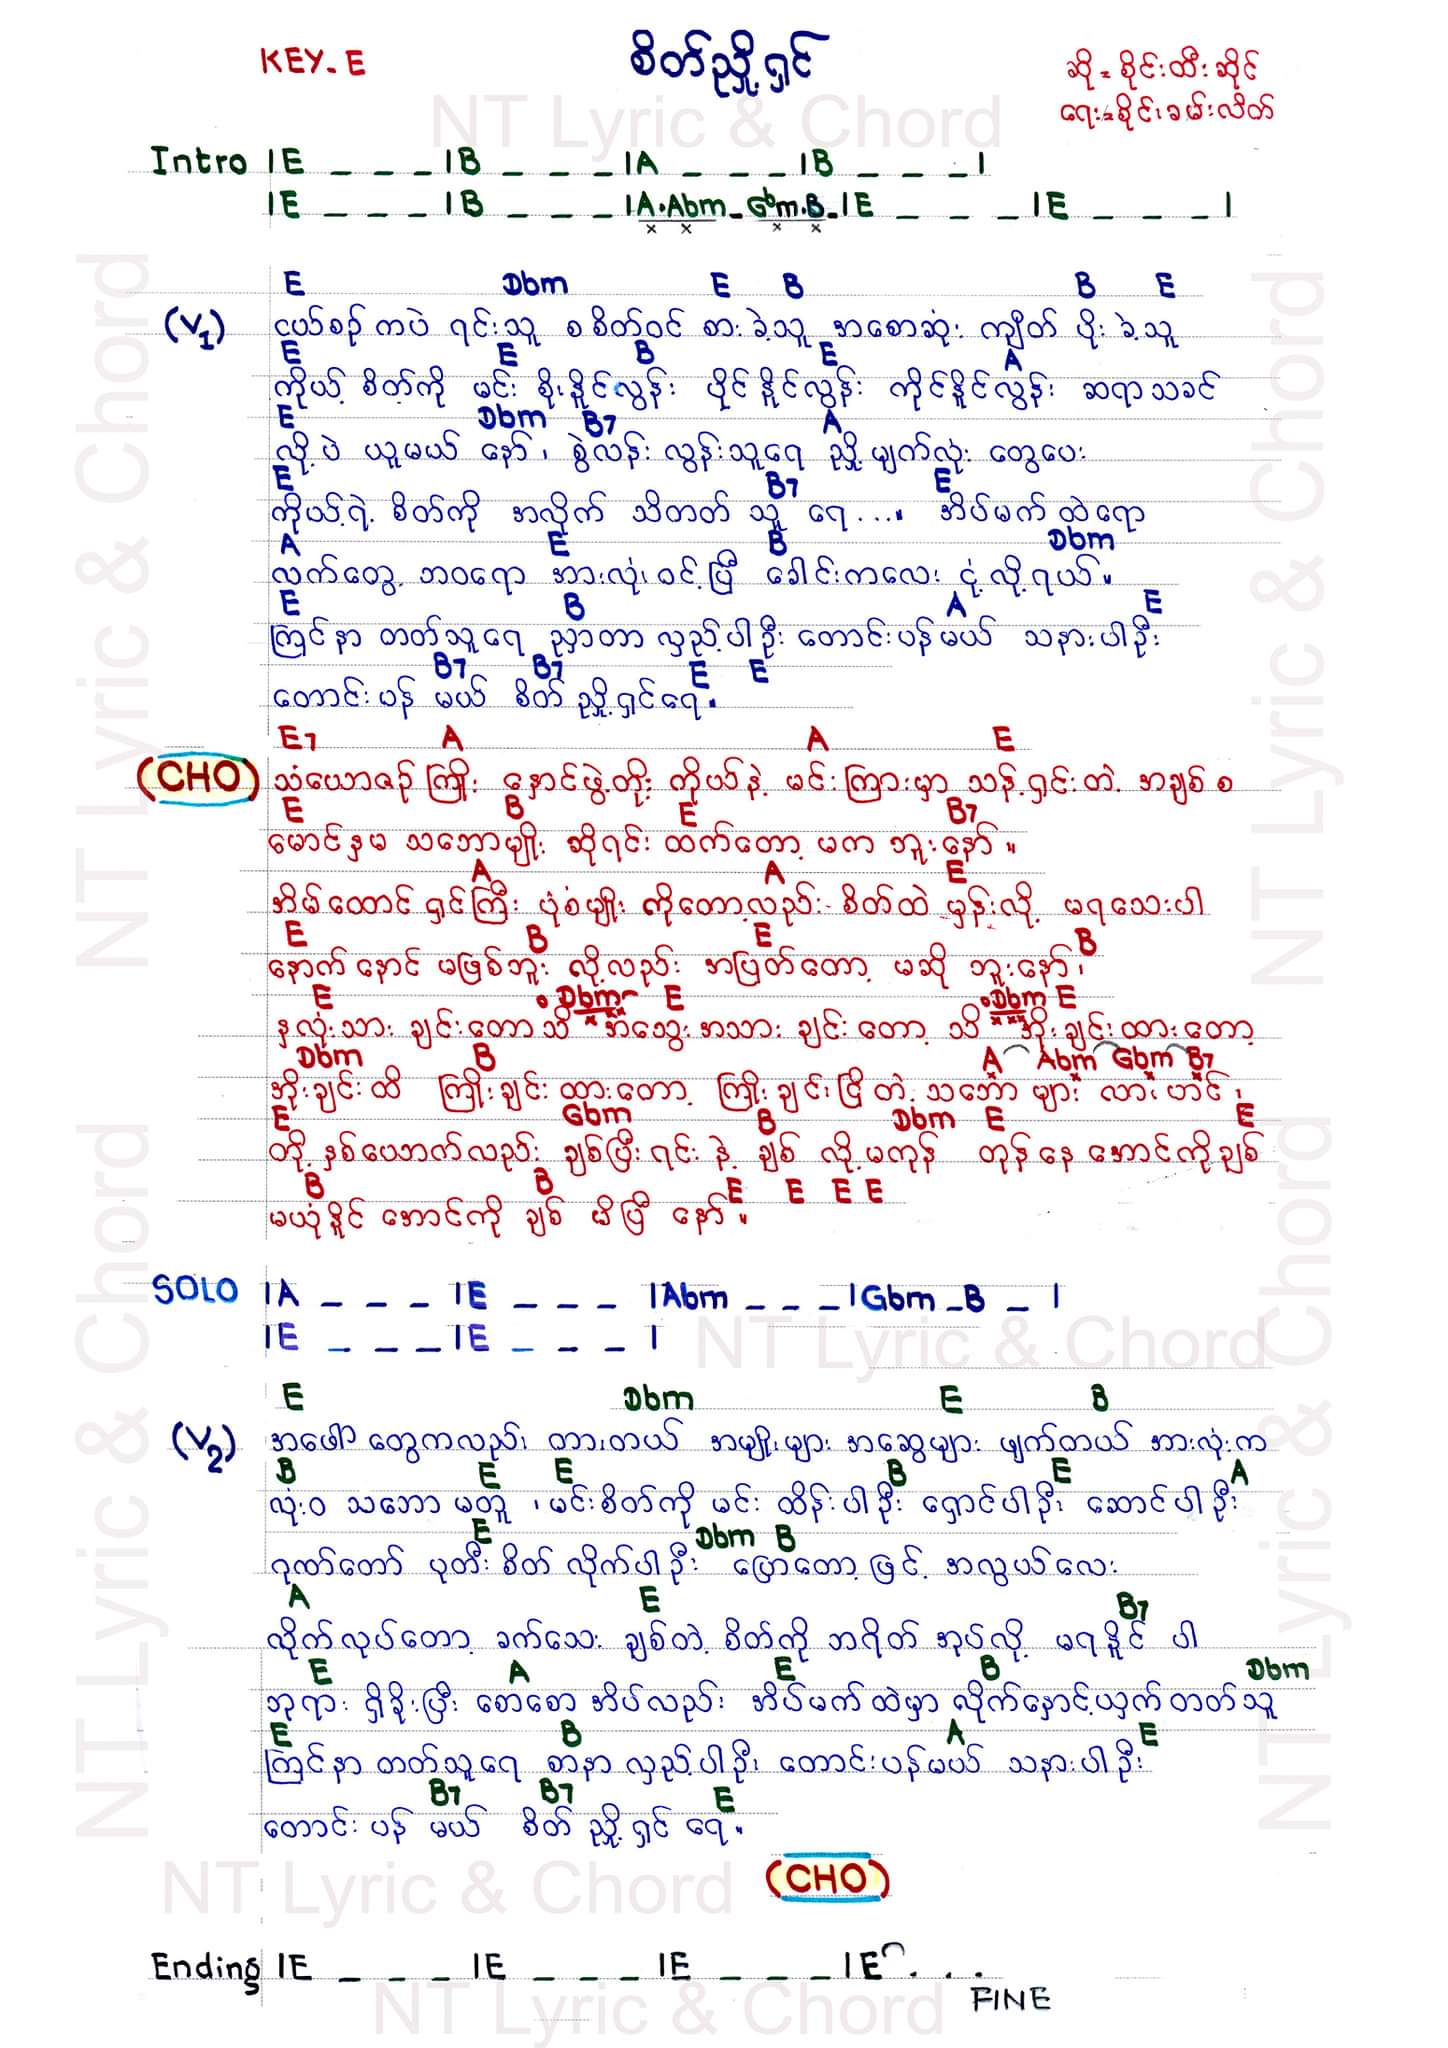 KEY-E
စိတ်ညှို့ရှင်
ဆို = စိုင်းထီးဆိုင်
ရေး = စိုင်းခမ်းလိတ်
NT Lyric & Chord
Intro |E _ _ _ |B _ _ _ |A _ _ _ |B _ _ _ |
|E _ _ _ |B _ _ _ |A.Abm _ Gbm.B _ |E _ _ _ |E _ _ _ |
E Dbm E B B E
(V1) ငယ်စဉ်ကပဲ ရင်းသူ စစိတ်ဝင် စားခဲ့သူ အစောဆုံး ကျိတ် ပိုးခဲ့သူ
E E B E A
ကိုယ့် စိတ်ကို မင်း စိုးနိုင်လွန်း ပိုင်နိုင်လွန်း ကိုင်နိုင်လွန်း ဆရာသခင်
E Dbm B7 A
လို့ပဲ ယူမယ် နော်၊ စွဲလန်း လွန်းသူရေ ညှို့မျက်လုံး တွေပေး
E B7 E
ကိုယ့်ရဲ့ စိတ်ကို အလိုက် သိတတ် သူ ရေ...။ အိပ်မက်ထဲရော
A E B Dbm
လက်တွေ့ ဘဝရော အားလုံးဝင့်ပြီ ခေါင်းကလေး ငုံ့လို့ရယ်။
E B A E
ကြင်နာ တတ်သူရေ ညှာတာ လှည့်ပါဦး တောင်းပန်မယ် သနားပါဦး
B7 B7 E E
တောင်းပန် မယ် စိတ် ညှို့ရှင်ရေ။
E7 A A E
(CHO) သံယောဇဉ်ကြိုး နှောင်ဖွဲ့တိုး ကိုယ်နဲ့ မင်းကြားမှာ သန့်ရှင်းတဲ့ အချစ်စ
E B E B7
မောင်နှမ သဘောမျိုး ဆိုရင်း ထက်တော့ မက ဘူးနော်။
A A E
အိမ်ထောင်ရှင်ကြီး ပုံစံမျိုး ကိုတော့လည်း စိတ်ထဲ မှန်းလို့ မရသေးပါ
E B E B
နောက်နောင် မဖြစ်ဘူး လို့လည်း အပြတ်တော့ မဆို ဘူးနော်၊
E Dbm E Dbm E
နှလုံးသား ချင်းတော့သိ အသွေးအသား ချင်းတော့ သိ အိုးချင်းထားတော့
Dbm B A Abm Gbm B7
အိုးချင်းထိ ကြိုးချင်းထားတော့ ကြိုးချင်းငြိတဲ့ သဘော များ လားဟင်၊
E Gbm B Dbm E E
တို့နှစ်ယောက်လည်း ချစ်ပြီးရင်းနဲ့ ချစ် လို့မကုန် တုန်နေအောင်ကိုချစ်
B B E E E E
မယုံနိုင်အောင်ကို ချစ် မိပြီ နော်။
SOLO |A _ _ _ |E _ _ _ |Abm _ _ _ |Gbm _ B _ |
|E _ _ _ |E _ _ _ |
NT Lyric & Chord
E Dbm E B
(V2) အဖော် တွေကလည်း တားတယ် အမျိုးများ အဆွေများ ဖျက်တယ် အားလုံးက
B E E B E A
လုံးဝ သဘော မတူ ၊မင်းစိတ်ကို မင်း ထိန်းပါဦး ရှောင်ပါဦး ဆောင်ပါဦး
E Dbm B
ဂုဏ်တော် ပုတီးစိတ် လိုက်ပါဦး ပြောတော့ဖြင့် အလွယ်လေး
A E B7
လိုက်လုပ်တော့ ခက်သေး ချစ်တဲ့စိတ်ကို ဘရိတ်အုပ်လို့ မရနိုင် ပါ
E A E B Dbm
ဘုရား ရှိခိုးပြီး စောစောအိပ်လည်း အိပ်မက်ထဲမှာ လိုက်နှောင့်ယှက်တတ်သူ
E B A E
ကြင်နာ တတ်သူရေ စာနာ လှည့်ပါဦး တောင်းပန်မယ် သနားပါဦး
B7 B7 E
တောင်းပန် မယ် စိတ် ညှို့ရှင် ရေ။
(CHO)
NT Lyric & Chord
Ending |E _ _ _ |E _ _ _ |E _ _ _ |E . . .
FINE
NT Lyric & Chord
NT Lyric & Chord
NT Lyric & Chord
NT Lyric & Chord
NT Lyric & Chord